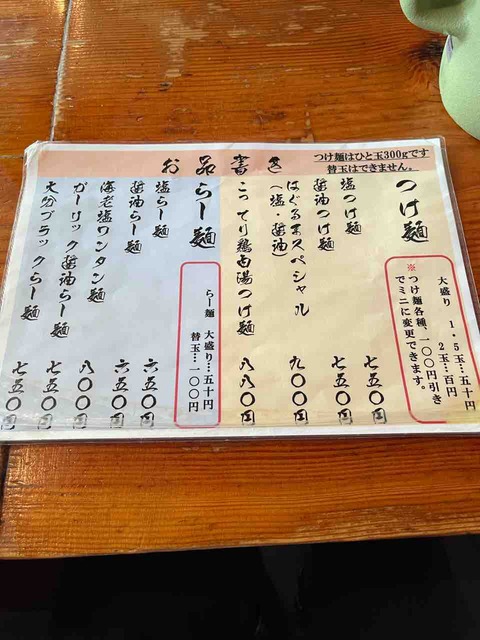 お品書き
つけ麺はひと玉300gです
替玉はできません。
つけ麺
大盛り 1・5玉…五十円
2玉…百円
※つけ麺各種、一〇〇円引き
でミニに変更できます。
塩つけ麺 七五〇円
醤油つけ麺 七五〇円
はぐるまスペシャル
(塩・醤油) 九〇〇円
こってり鶏白湯つけ麺 八八〇円
らー麺
らー麺 大盛り…五十円
替玉…一〇〇円
塩らー麺 六五〇円
醤油らー麺 六五〇円
海老塩ワンタン麺 八〇〇円
ガーリック醤油らー麺 七五〇円
大分ブラックらー麺 七五〇円